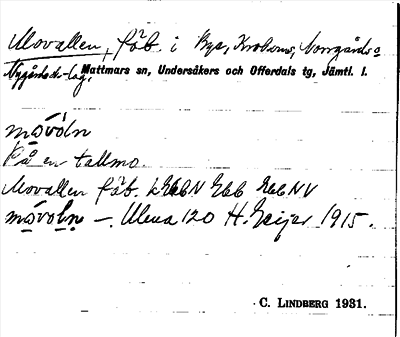 Movallen, fäb. i Bye, Kroknäs, Norrgårds o
Nygårds-lag, Mattmars sn, Undersåkers och Offerdals tg, Jämtl. l.
mŏvóln
På en tallmo.
Movallen fäb. k Ebl N Ebl Ebl NV
mŏvoln — Ulena 120 H. Geijer 1915.
C. LINDBERG 1931.